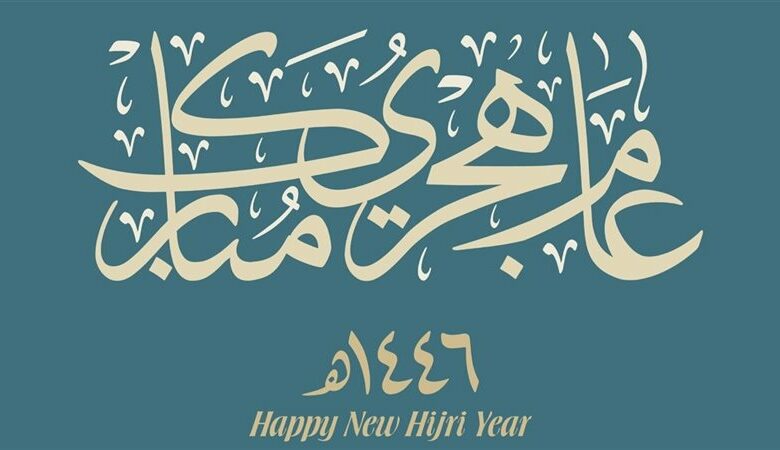 عام هجري مبارك
١٤٤٦هـ
Happy New Hijri Year